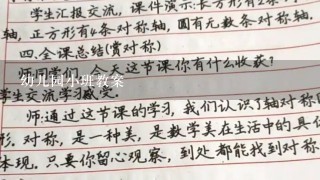 学生汇报交流，课件演示：长方形有2条对
轴，正方形有4条对称轴，圆有无数条对称轴.
四.全课总结(赏对称)
今天这节课你有什么收获？
幼儿园小班教案
学生交流学习
师：通过这节课的学习，我们认识了轴对称图
形.对称，是一种美，是数学美在生活中的具体
体现.只要你留心观察，到处都能找到对称